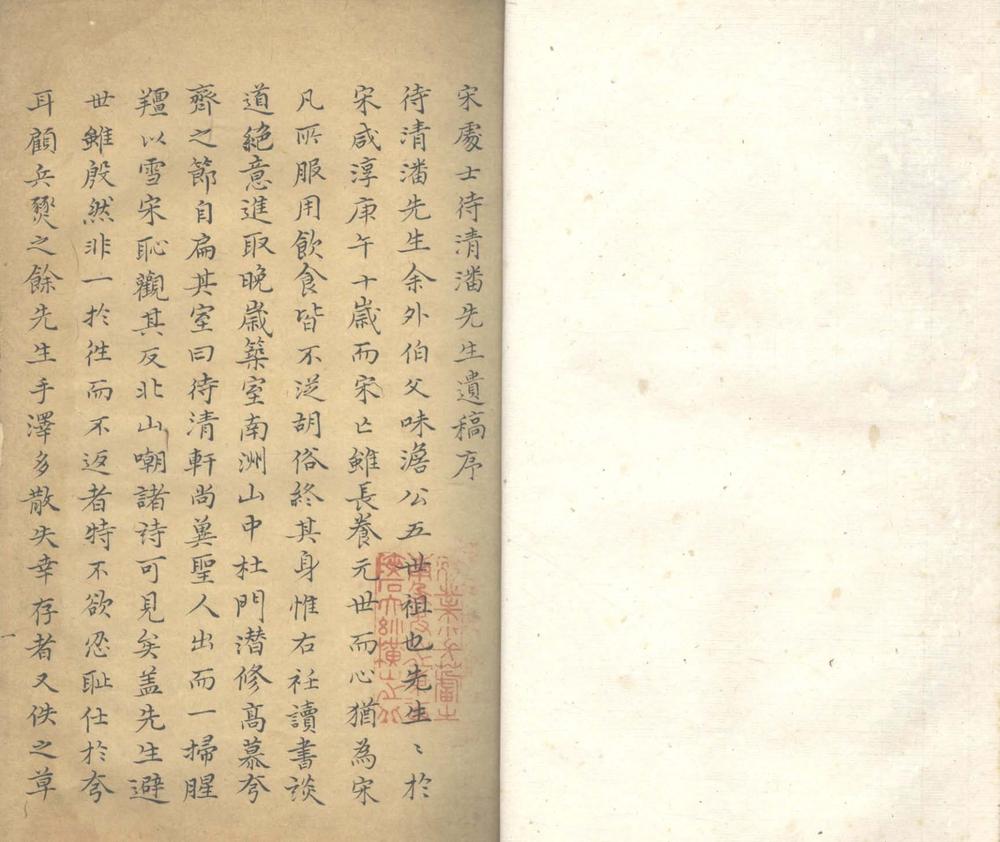 宋處士待清潘先生遺稿序
待清潘先生余外伯父味澹公五世祖也先生〻於
宋咸淳庚午十歲而宋亡雖長養元世而心猶為宋
凡所服用飲食皆不從胡俗終其身惟右衽讀書談
道絕意進取晚歲築室南洲山中杜門潛修高慕夸
齊之節自扁其室曰待清軒尚冀聖人出而一掃腥
羶以雪宋恥觀其反北山嘲諸詩可見矣盖先生避
世雖殷然非一於徃而不返者特不欲忍耻仕於夸
耳顧兵燹之餘先生手澤多散失幸存者又佚之草
一